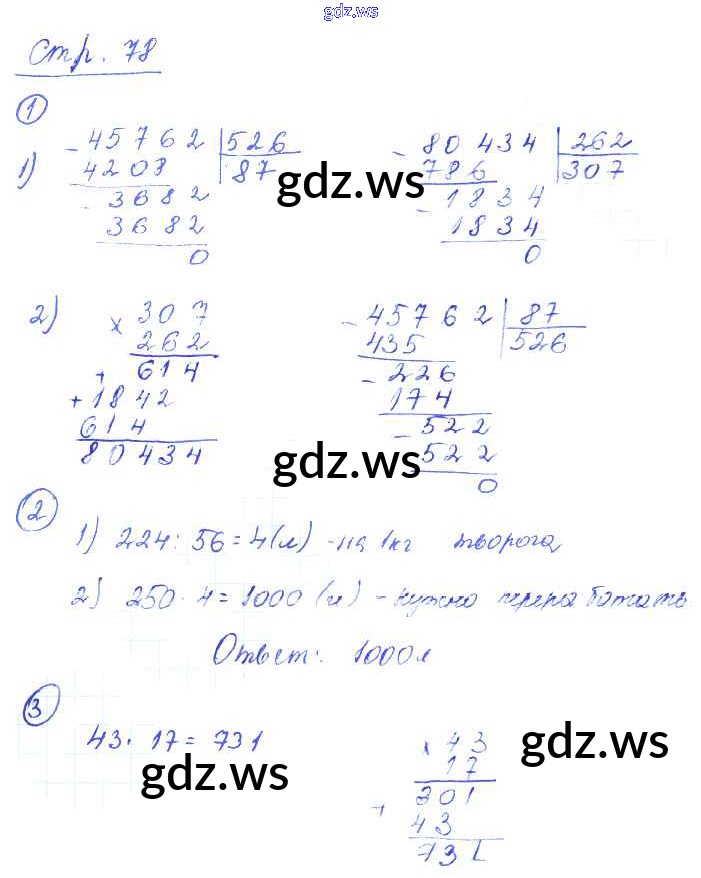 gdz.ws
Стр. 78
1
1) - 45762 | 526
4208 | 87
- 3682
3682
0
- 80434 | 262
786 | 307
- 1834
1834
0
gdz.ws
2) × 307
262
+ 614
+ 1842
614
80434
- 45762 | 87
435 | 526
- 226
174
- 522
522
0
gdz.ws
2
1) 224 : 56 = 4 (л) - на 1кг творога
2) 250 · 4 = 1000 (л) - нужно переработать
Ответ: 1000л
3
43 · 17 = 731
× 43
17
+ 301
43
731
gdz.ws
gdz.ws